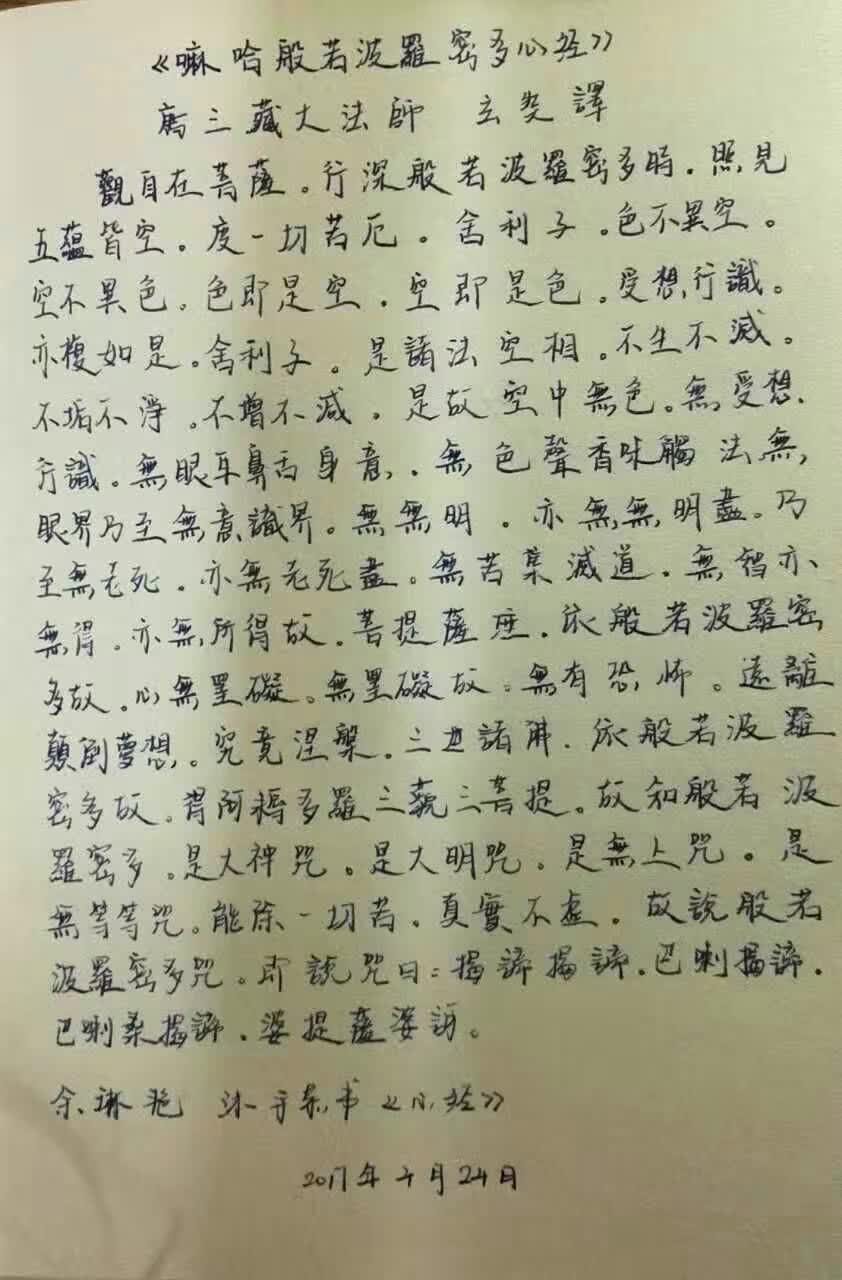 《嘛哈般若波羅密多心经》
唐三藏大法師 玄奘譯
觀自在菩薩。行深般若波羅密多時。照見
五蘊皆空。度一切苦厄。舍利子。色不異空。
空不異色。色即是空。空即是色。受想行識。
亦複如是。舍利子。是諸法空相。不生不滅。
不垢不淨。不增不減。是故空中無色。無受想.
行識。無眼耳鼻舌身意。無色聲香味觸法無
眼界乃至無意識界。無無明。亦無無明盡。乃
至無老死。亦無老死盡。無苦集滅道。無智亦
無得。亦無所得故。菩提薩庶。依般若波羅密
多故。心無罣礙。無罣礙故。無有恐怖。遠離
顛倒夢想。究竟涅槃。三世諸佛.依般若波羅
密多故。得阿耨多羅三藐三菩提。故知般若波
羅密多。是大神咒。是大明咒。是無上咒。是
無等等咒。能除一切苦。真實不虛。故說般若
波羅密多咒。即說咒曰:揭諦揭諦.巴喇揭諦.
巴喇桑揭諦.婆提薩婆訶。
余琳艳 沐手恭书《心经》
2017年 月24日